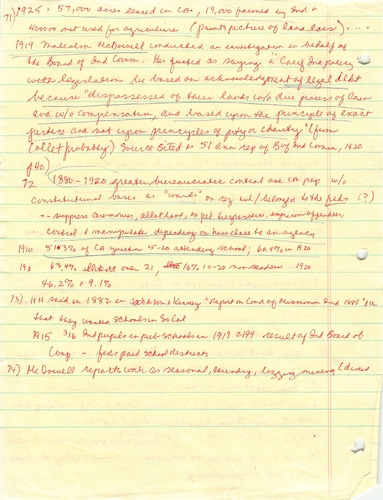 71) 1925 : 57,000 acres leased in CA, 19,000 farmed by Ind +
40000 not used for agriculture (paints picture of land loss) . . . .
1919 Malcolm McDowell conducted an investigation in behalf of
the Board of Ind Comm. He quoted as saying "Calif Ind policy
with legislation be based on acknowledgment of legal debt
because "dispossessed of their lands w/o due process of law
and w/o compensation, and based upon the principle of exact
justice and not upon principles of pity or charity" (from
Collet probably) Source cited as 51 ann rep of B of Ind Comm, 1920
p 40)
72 1880-1920 greater bureaucratic control over CA pop w/o
Constitutional bases as "wards" or rez wh/ belonged to the feds (?)
-- suppress ceremonies, allot land, or pet trespassers, imprison offenders,
control & manipulate depending on how close to an agency
1910 51.3% of CA 5-20 attending school; 60.4% in 1920
190 63.4% illit over 21, 16%, 10-20 non readers 1920
46.2% + 9.1%
73) HH said in 1882 in Jackson & Kinney "Report on Cond of Mission Ind 1883" p 12
that they wanted schools in So Cal
1915 316 Ind pupils in pub schools in 1919 2199 result of Ind Board of
Coop. - feds paid school districts
74) McDowell reports work as seasonal, laundry, logging, mining (dived